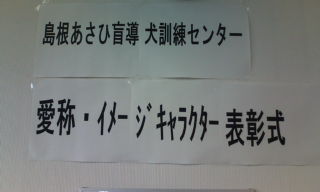 島根あさひ盲導 犬訓練センター
愛称・ｲﾒｰｼﾞｷｬﾗｸﾀｰ 表彰式